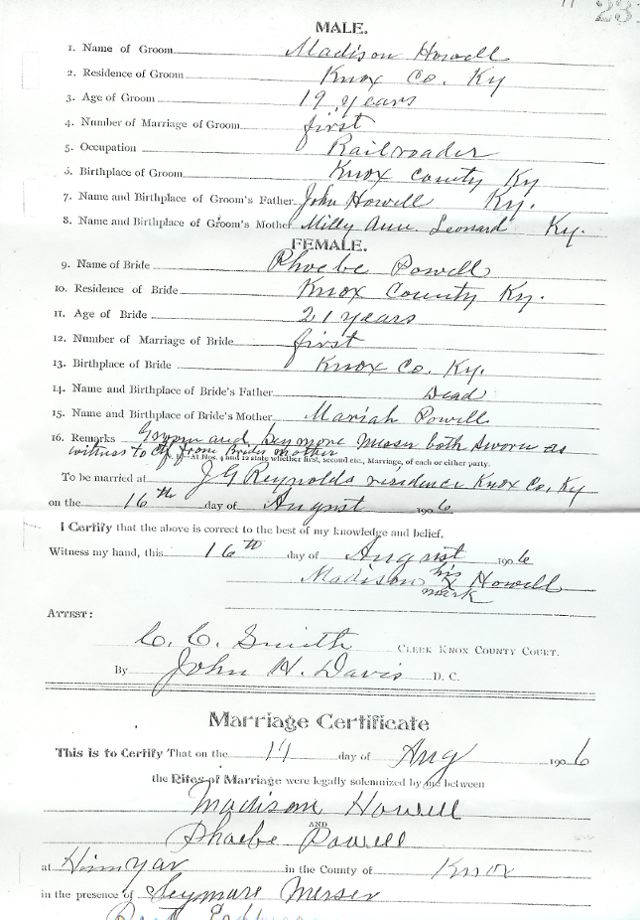 23
MALE.
1. Name of Groom Madison Howell
2. Residence of Groom Knox Co. Ky
3. Age of Groom 19 years
4. Number of Marriage of Groom first
5. Occupation Railroader
6. Birthplace of Groom Knox County Ky
7. Name and Birthplace of Groom's Father John Howell Ky.
8. Name and Birthplace of Groom's Mother Milly Ann Leonard Ky.
FEMALE.
9. Name of Bride Phoebe Powell
10. Residence of Bride Knox County Ky.
11. Age of Bride 21 years
12. Number of Marriage of Bride first
13. Birthplace of Bride Knox Co. Ky.
14. Name and Birthplace of Bride's Father Dead
15. Name and Birthplace of Bride's Mother Mariah Powell
16. Remarks Groom and Seymore Messer both sworn as
witness to from Brides mother
N. B.—At Nos. 4 and 12 state whether first, second etc., Marriage, of each or either party.
To be married at J G Reynolds residence Knox Co. Ky
on the 16th day of August 1906
I Certify that the above is correct to the best of my knowledge and belief.
Witness my hand, this 16th day of August 1906
Madison his X mark Howell
ATTEST:
C. C. Smith CLERK KNOX COUNTY COURT.
By John H. Davis D. C.
Marriage Certificate
This is to Certify That on the day of Aug 1906
the Rites of Marriage were legally solemnized by me between
Madison Howell
AND
Phoebe Powell
at Himyar in the County of Knox
in the presence of Seymare Messer